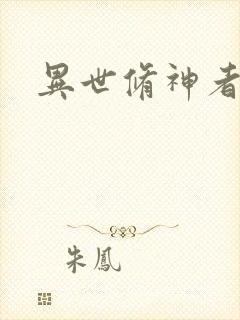 異世脩神者
朱鳳